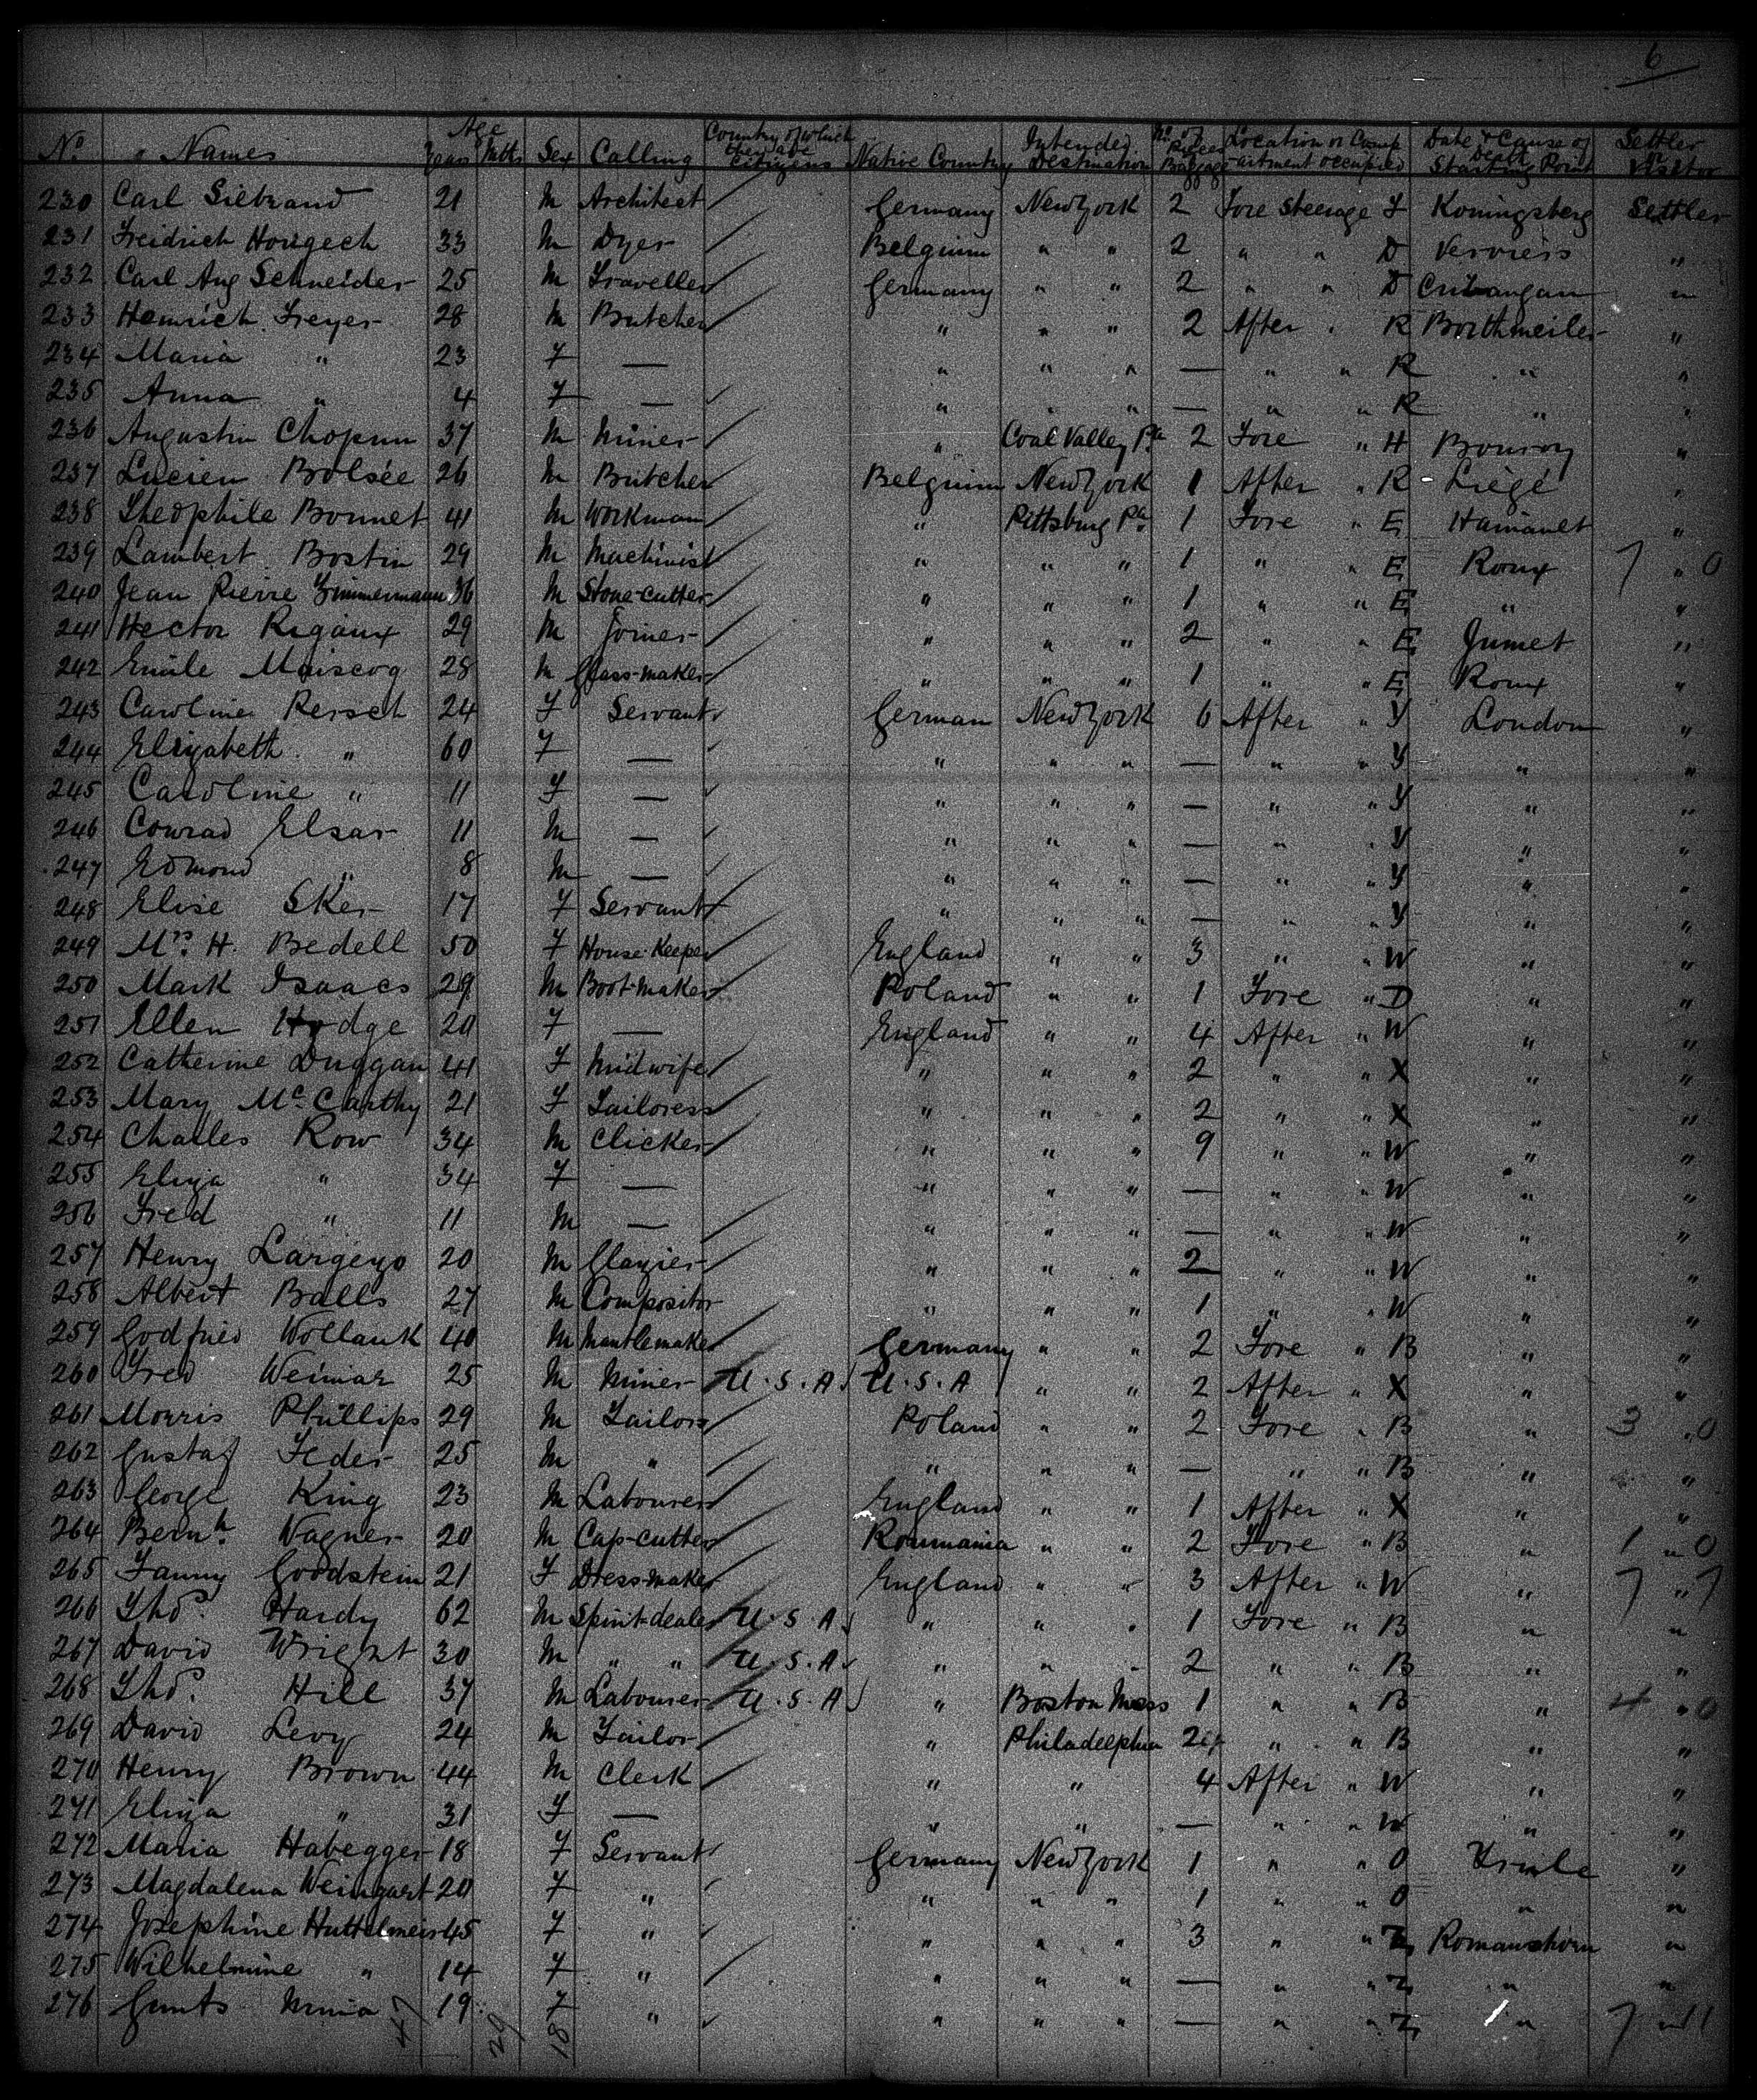 6
No. Names Age Years Mths Sex Calling Country of which they are Citizens Native Country Intended Destination No. of Pieces Baggage Location or Compartment occupied Date & Cause of Death Starting Point Settler or Visitor
230 Carl Siebrand 21 M Architect Germany New York 2 Fore Steerage Koningsberg Settler
231 Freidrich Hougech 33 M Dyer Belgium " " 2 " " D Verviers "
232 Carl Aug Schneider 25 M Traveller Germany " " 2 " " D "
233 Heinrich Freyer 28 M Butcher " " " 2 After " R "
234 Maria " 23 F — " " " — " " R " "
235 Anna " 4 F — " " " — " " R " "
236 Augustin Chopin 37 M Miner " Coal Valley Pa 2 Fore " H "
237 Lucien Bolsée 26 M Butcher Belgium New York 1 After " R Liége "
238 Theophile Bonnet 41 M Workman " Pittsburg Pa 1 Fore " E Hainault "
239 Lambert Bostin 29 M Machinist " " " 1 " " E Roux "
240 Jean Pierre Zimmermann 36 M Stone-cutter " " " 1 " " E " "
241 Hector Rigaux 29 M Joiner " " " 2 " " E Jumet "
242 Emile 28 M Glass-maker " " " 1 " " E Roux "
243 Caroline Persch 24 F Servant German New York 6 After " Y London "
244 Elizabeth " 60 F — " " " — " " Y " "
245 Caroline " 11 F — " " " — " " Y " "
246 Conrad Elsar 11 M — " " " — " " Y " "
247 Edmond " 8 M — " " " — " " Y " "
248 Elise Sker 17 F Servant " " " — " " Y " "
249 Mrs. H. Bedell 50 F House-Keeper England " " 3 " " W " "
250 Mark Isaacs 29 M Boot-maker Poland " " 1 Fore " D " "
251 Ellen Hodge 20 F — England " " 4 After " W " "
252 Catherine Duggan 41 F Midwife " " " 2 " " X " "
253 Mary McCarthy 21 F Tailoress " " " 2 " " X " "
254 Charles Row 34 M Clicker " " " 9 " " W " "
255 Eliza " 34 F — " " " — " " W " "
256 Fred " 11 M — " " " — " " W " "
257 Henry Largeyo 20 M Glazier " " " 2 " " W " "
258 Albert Balls 27 M Compositor " " " 1 " " W " "
259 Godfried Wollank 40 M Mantlemaker Germany " " 2 Fore " B " "
260 Fred Weimar 25 M Miner U.S.A U.S.A " " 2 After " X " "
261 Morris Phillips 29 M Tailor Poland " " 2 Fore " B " "
262 Gustaf Feder 25 M " " " " — " " B " "
263 George King 23 M Labourer England " " 1 After " X " "
264 Bernh. Wagner 20 M Cap-cutter Roumania " " 2 Fore " B " "
265 Fanny Goodstein 21 F Dress-maker England " " 3 After " W " "
266 Thos. Hardy 62 M Spirit-dealer U.S.A " " " 1 Fore " B " "
267 David Wright 30 M " " U.S.A " " " 2 " " B " "
268 Thos. Hill 37 M Labourer U.S.A " Boston Mass 1 " " B " "
269 David Levy 24 M Tailor " Philadelphia 2 " " B " "
270 Henry Brown 44 M Clerk " " 4 After " W " "
271 Eliza " 31 F — " " — " " W " "
272 Maria Habegger 18 F Servant Germany New York 1 " " O "
273 Magdalena Weingart 20 F " " " " 1 " " O " "
274 Josephine Huttelmeir 45 F " " " " 3 " " Z Romanshorn "
275 Wilhelmine " 14 F " " " " — " " Z " "
276 Gunts Minia 19 F " " " " — " " Z " "
47 29 18